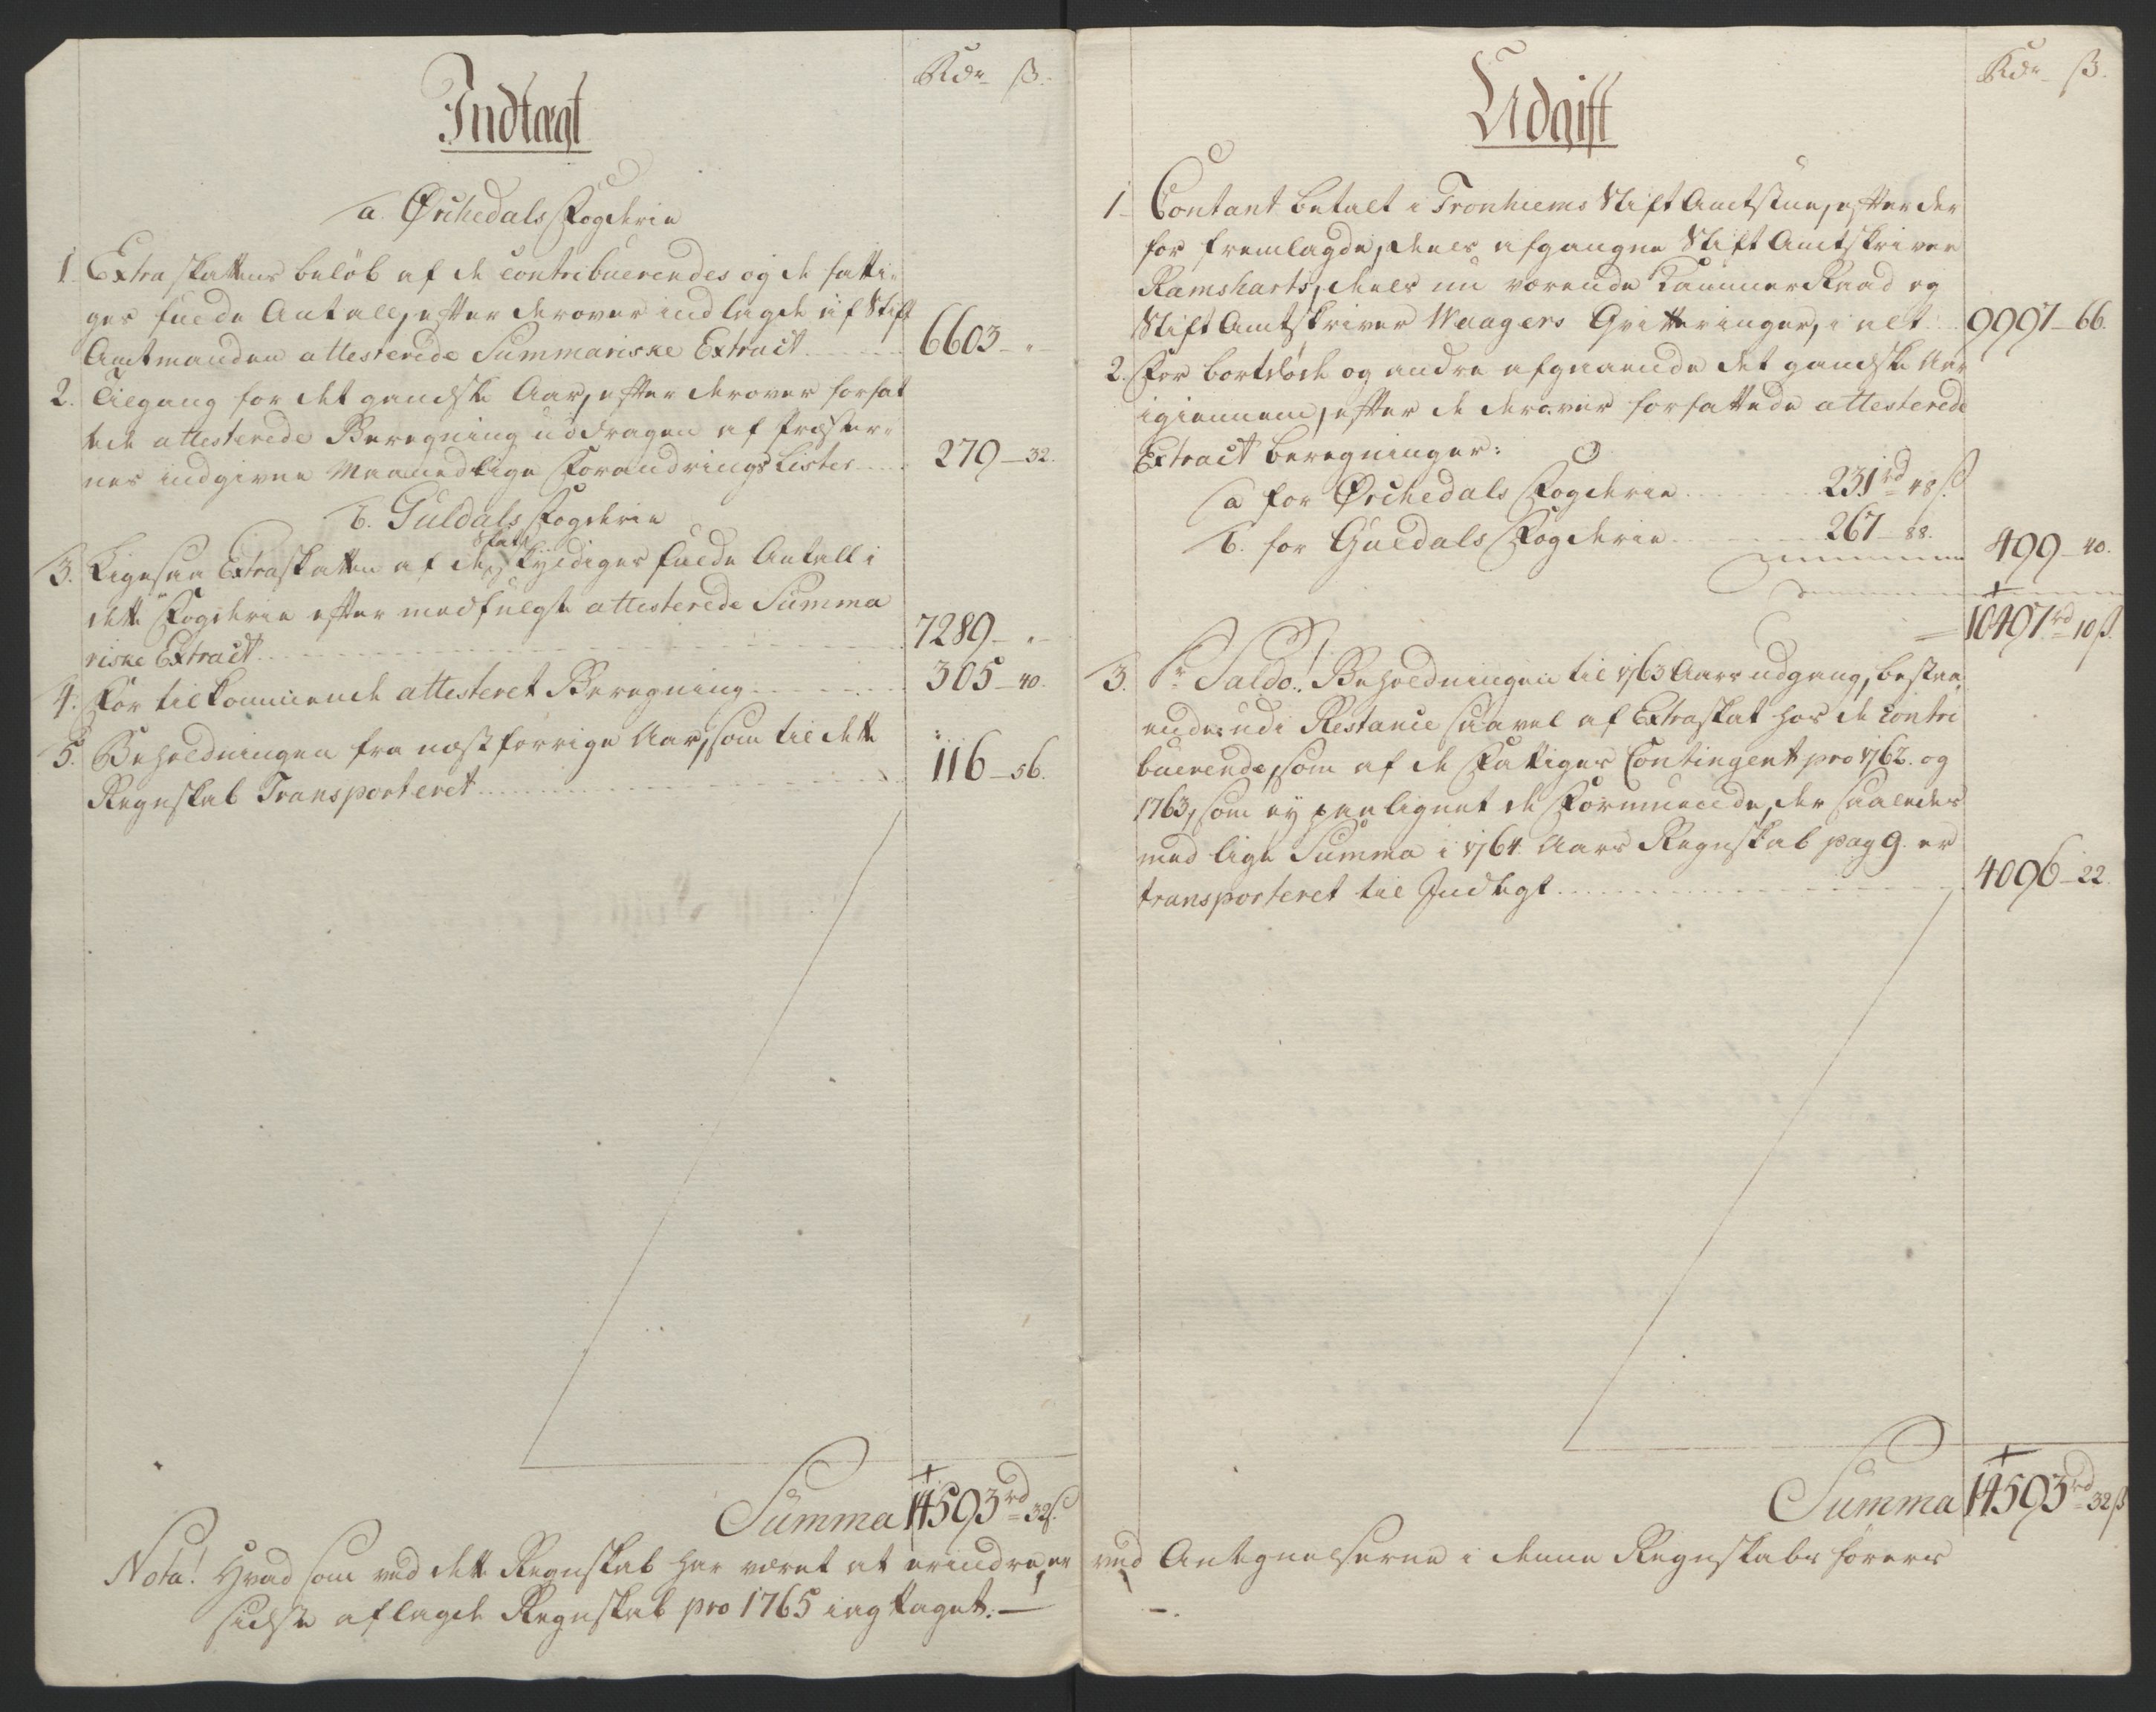 Indtægt
Rdr ß.
a. Ørchedals Fogderie
1. Extra skattens beløb af de contribuerendes og de fatti-
ges fulde Antall, efter derover indlagde af Stift
Amtmanden attesterede Summariske Extract 6603 - "
2. Tilgang for det gandske Aar, efter derover forfat
tede attesterede Beregning uddragen af Præster-
nes indgivne Maanedlige Forandrings Lister 279 - 32.
b. Guldals Fogderie
3. Ligesaa Extraskatten af de Skatskyldiges fulde Antall i
dette Fogderie efter medfulgte attesterede Summa
riske Extract 7289 - "
4. For tilkommende attesteret Beregning 305 - 40.
5. Beholdningen fra næstforrige Aar, som til dette
Regnskab Transporteret 116 - 56.
Summa 14593 rd 32 ß
Nota! Hvad som ved dette Regnskab har været at erindre, er ved Antegnelserne i denne Regnskabs førers
sidste aflagde Regnskab pro 1765 iagttaget. —
Udgift
Rdr ß.
1. Contant betalt i Tronhiems Stift Amtstue, efter der
for fremlagde, deels afgangne Stift Amtskriver
Ramsharts, deels nu værende Kammer Raad og
Stift Amtskriver Waagers Qvitteringer, i alt 9997 - 66.
2. For bortdøde og andre afgaaende det gandske Aar
igiennem, efter de derover forfattede attesterede
Extract beregninger:
a for Ørchedals Fogderie 231 rd 48 ß
b. for Guldals Fogderie 267 - 88. 499 - 40.
10497 rd 10 ß.
3. Pr Saldo! Beholdningen til 1763 Aars udgang, bestaa
ende udi Restance saavel af Extraskat hos de contri
buerende, som af de Fattiges Contingent pro 1762. og
1763, som ey paalignet de Formuende, der saaledes
med lige Summa i 1764 Aars Regnskab pag 9. er
transporteret til Indtægt 4096 - 22.
Summa 14593 rd 32 ß